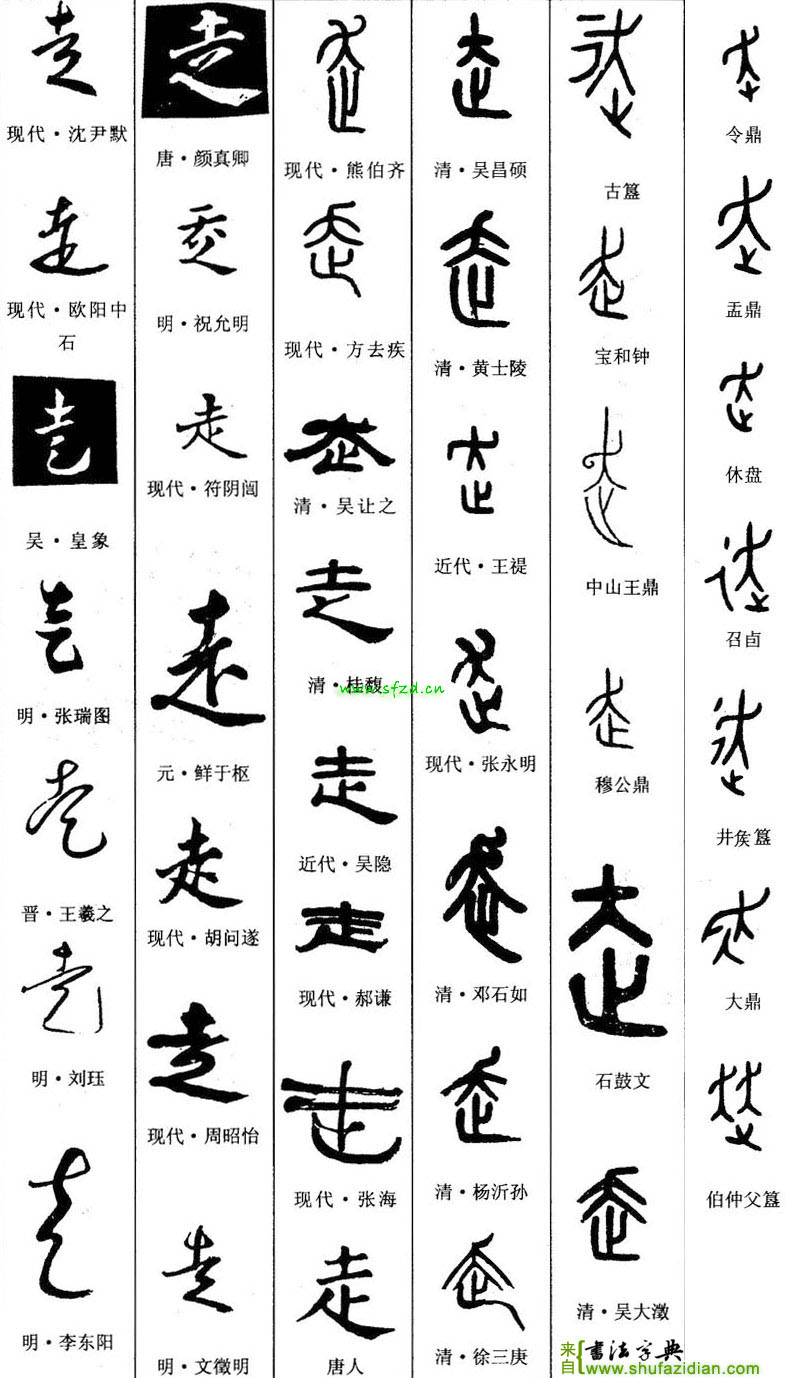 走
现代·沈尹默
走
现代·欧阳中
石
走
吴·皇象
走
明·张瑞图
走
晋·王羲之
走
明·刘珏
走
明·李东阳
走
唐·颜真卿
走
明·祝允明
走
现代·
走
元·鲜于枢
走
现代·胡问遂
走
现代·周昭怡
走
明·文徵明
走
现代·熊伯齐
走
现代·方去疾
走
清·吴让之
走
清·桂馥
走
近代·吴隐
走
现代·郝谦
走
现代·张海
走
唐人
走
清·吴昌硕
走
清·黄士陵
走
近代·王禔
走
现代·张永明
走
清·邓石如
走
清·杨沂孙
走
清·徐三庚
走
古簋
走
宝和钟
走
中山王鼎
走
穆公鼎
走
石鼓文
走
清·吴大澂
走
令鼎
走
盂鼎
走
休盘
走
召卣
走
井侯簋
走
大鼎
走
伯仲父簋
www.sfzd.cn
来自 书法字典
www.shufazidian.com